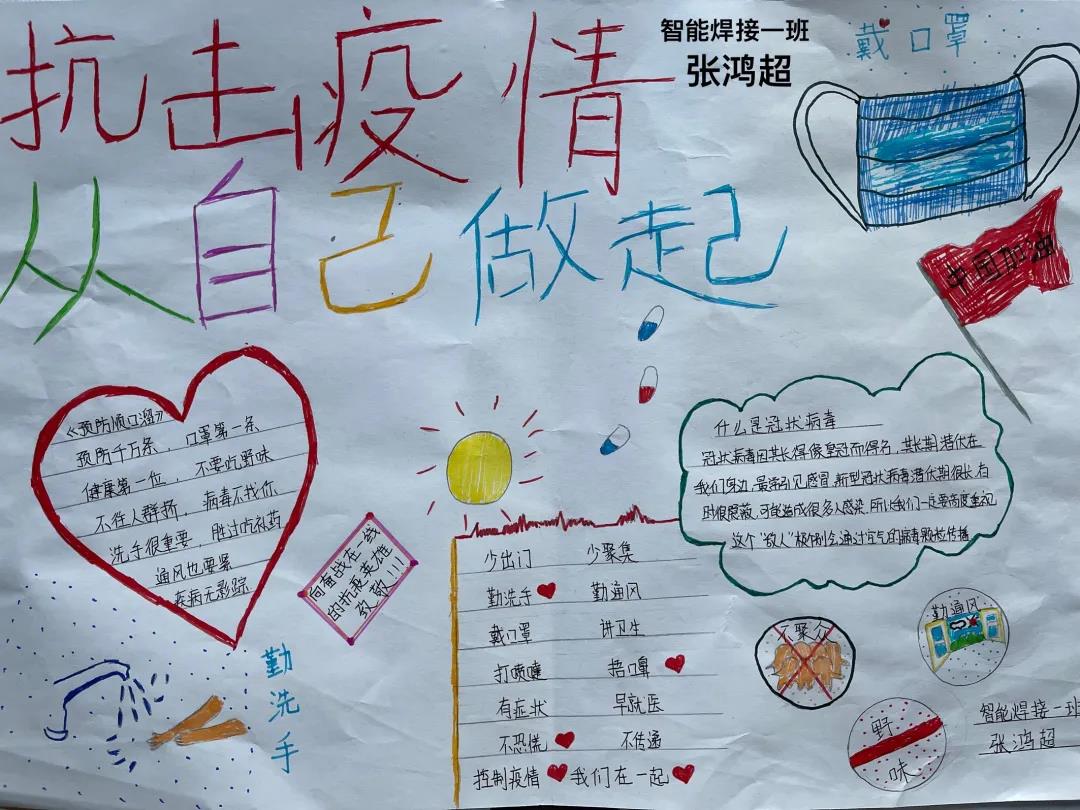 抗击疫情
智能焊接一班
张鸿超
戴口罩
从自己做起
中国加油
《预防顺口溜》
预防千万条，口罩第一条
健康第一位，不要吃野味
不往人群挤，病毒不找你
洗手很重要，胜过吃补药
通风也要紧
疾病无影踪
向奋战在一线
的抗疫英雄
致敬!!!
什么是冠状病毒
冠状病毒因其长得像皇冠而得名，其长期潜伏在
我们身边，最常引见感冒，新型冠状病毒潜伏期很长有
时很隐蔽，可能造成很多人感染，所以我们一定要高度重视
这个“敌人”
通过空气的病毒颗粒传播
少出门 少聚集
勤洗手 勤通风
戴口罩 讲卫生
打喷嚏 捂口鼻
有症状 早就医
不恐慌 不传谣
控制疫情 我们在一起
勤洗手
聚众
勤通风
野味
智能焊接一班
张鸿超